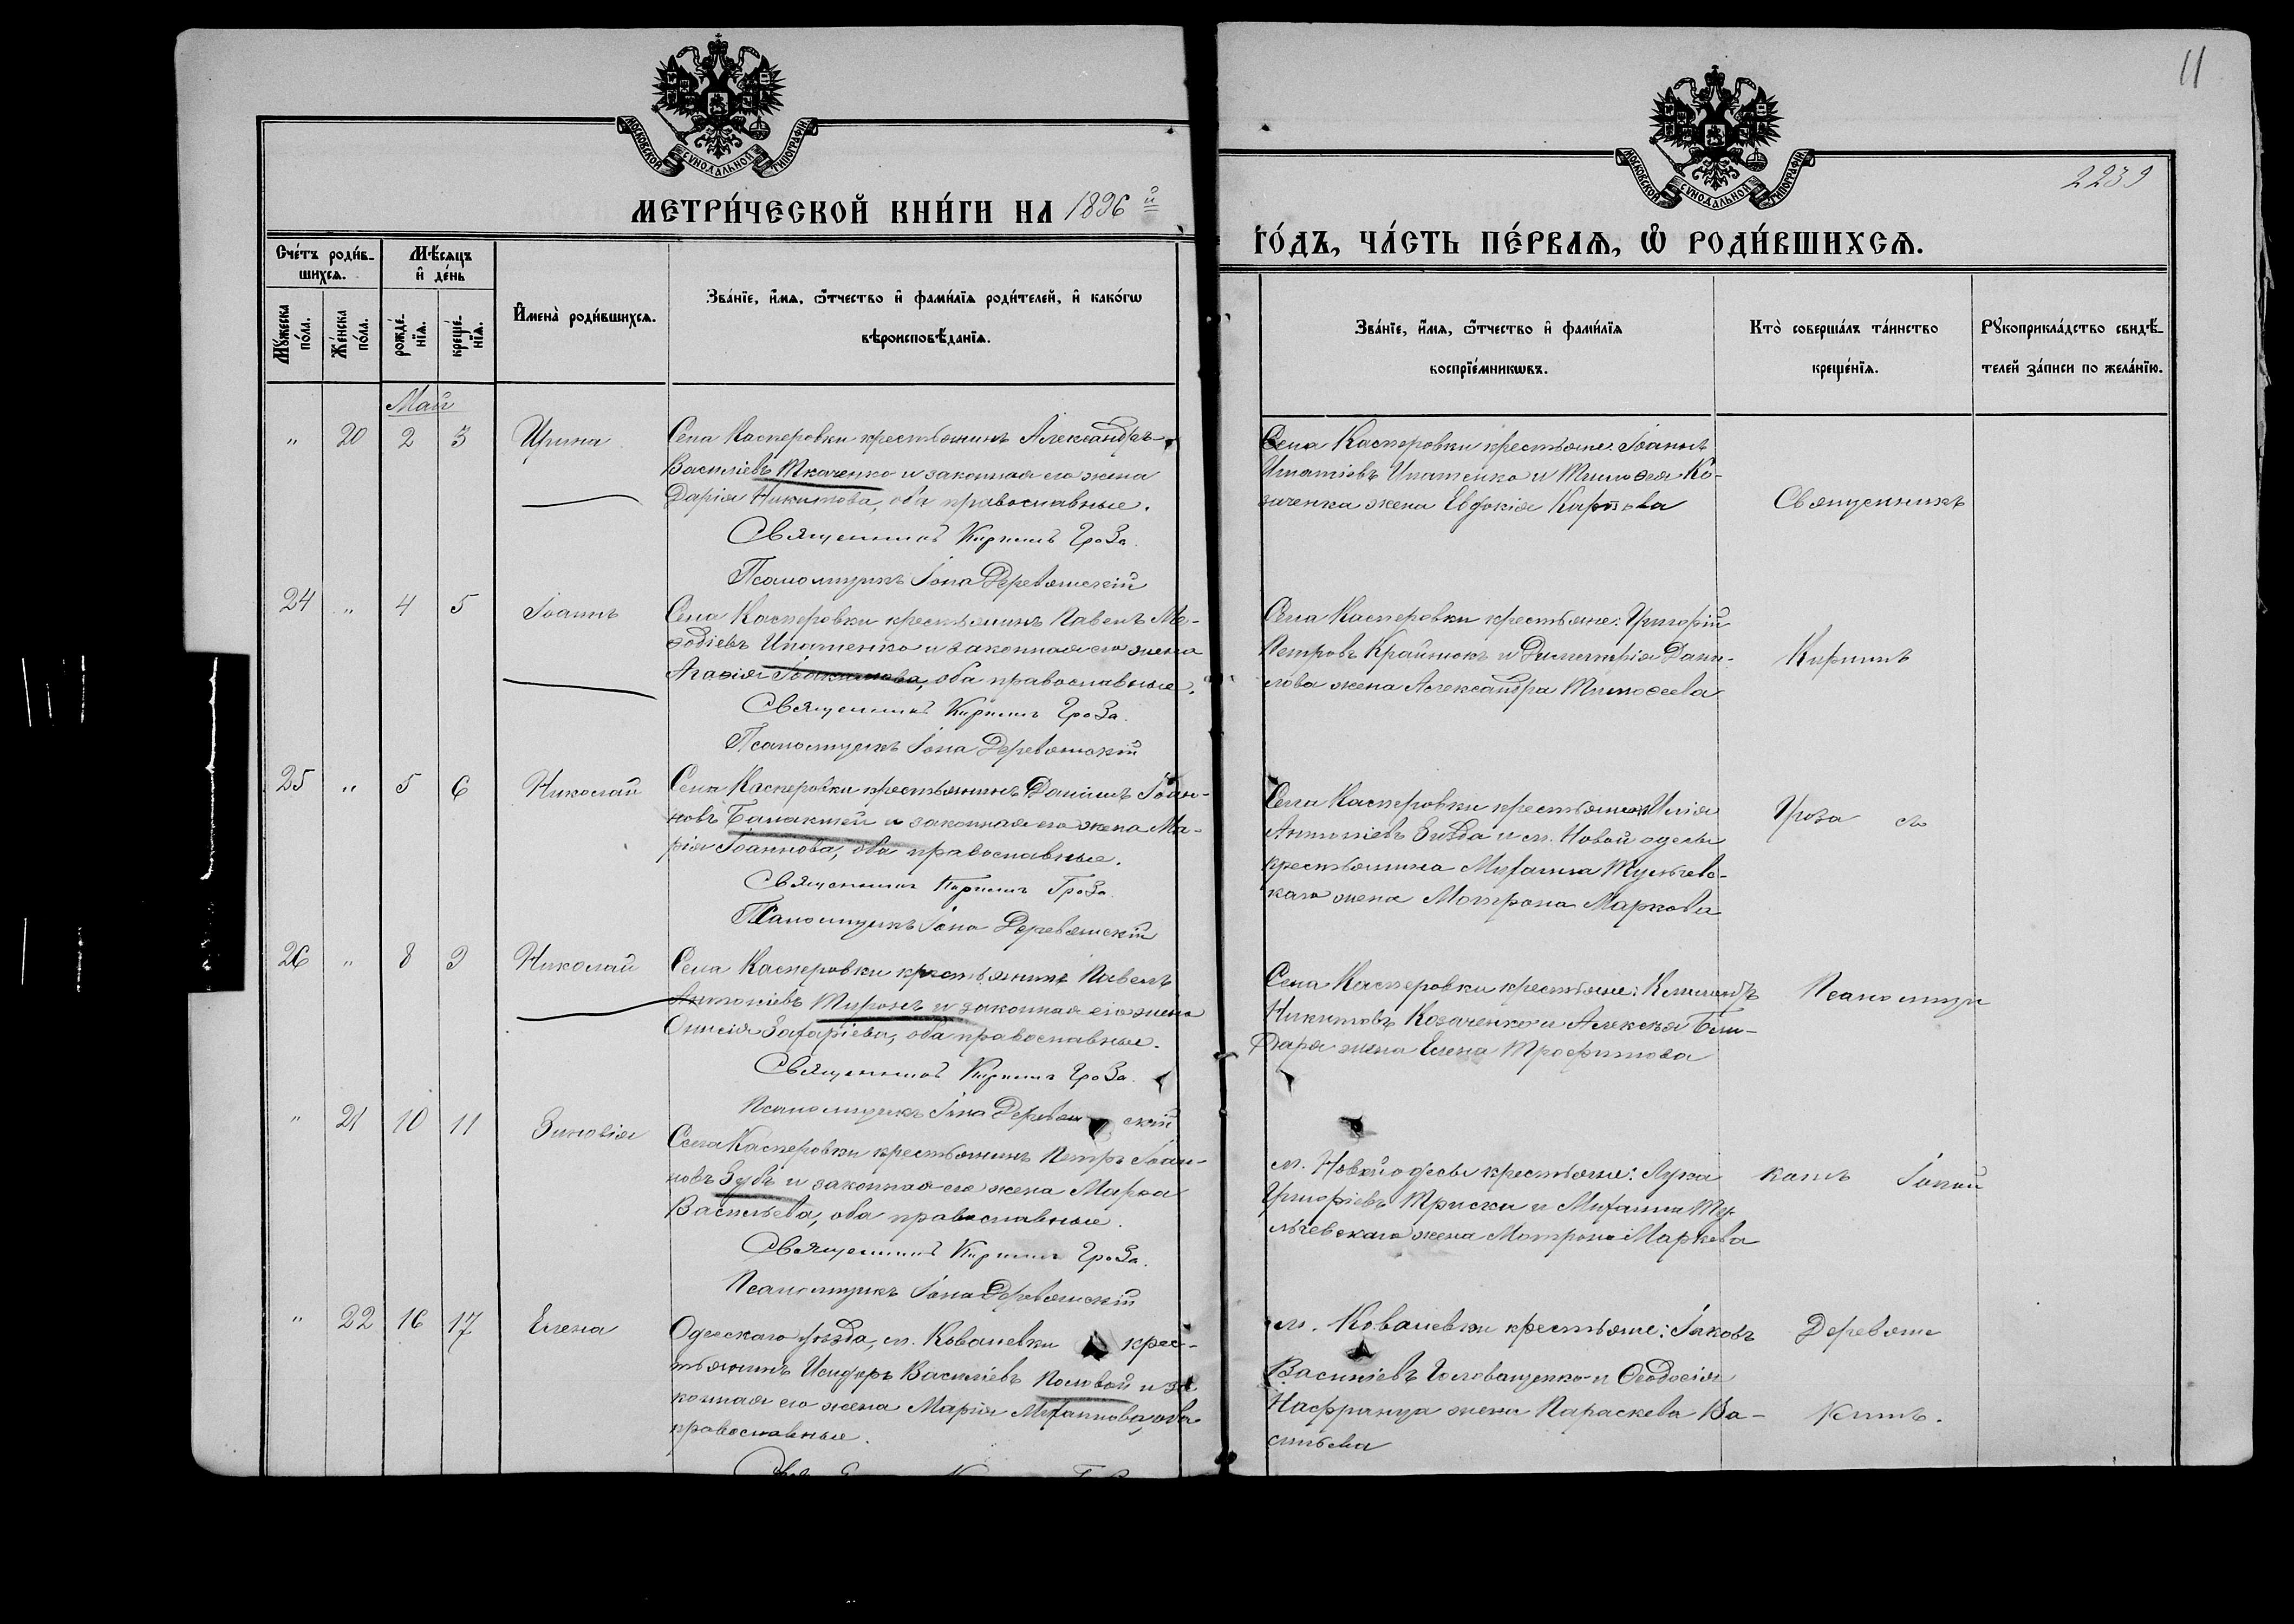 11
МОСКОВСКОЙ СѴНОДАЛЬНОЙ ТИПОГРАФІИ
МОСКОВСКОЙ СѴНОДАЛЬНОЙ ТИПОГРАФІИ
2239
МЕТРИ́ЧЕСКОЙ КНИ́ГИ НА 1896й
ГО́ДЪ, ЧА́СТЬ ПЕ́РВАѦ, Ѡ҆ РОДИ́ВШИХСѦ.
Сче́тъ роди́в-
шихсѧ.
Мꙋ́жеска по́ла.
Же́нска по́ла.
Мѣ́сѧцъ
и҆ де́нь
рожде́-нїѧ.
креще́-нїѧ.
И҆мена̀ роди́вшихсѧ.
Зва́нїе, и҆́мѧ, ѻ҆́тчество и҆ фами́лїѧ роди́телей, и҆ како́гѡ
вѣроисповѣ́данїѧ.
Зва́нїе, и҆́мѧ, ѻ҆́тчество и҆ фами́лїѧ
воспрїе́мникѡвъ.
Кто̀ соверша́лъ та́инство
креще́нїѧ.
Рꙋкоприкла́дство свидѣ́-
телей за́писи по жела́нїю.
Май
" 20 2 3 Ирина
Села Касперовки крестьянинъ Александръ
Василіевъ Ткаченко и законная его жена
Дарія Никитова, оба православные.
Священникъ Кириллъ Гроза.
Псаломщикъ Іона Деревянскій
Села Касперовки крестьяне: Іоаннъ
Игнатіевъ Ипатенко и Тимоѳея Ко-
заченка жена Евдокія Карпова
Священникъ
24 " 4 5 Іоаннъ
Села Касперовки крестьянинъ Павелъ Ме-
ѳодіевъ Ипатенко и законная его жена
Агаѳія Іоакимова, оба православные.
Священникъ Кириллъ Гроза.
Псаломщикъ Іона Деревянскій
Села Касперовки крестьяне: Григорій
Петровъ Крайнюкъ и Димитрія Дани-
лова жена Александра Тимоѳеева
Кириллъ
25 " 5 6 Николай
Села Касперовки крестьянинъ Даніилъ Іоан-
новъ Балакшей и законная его жена Ма-
рія Іоаннова, оба православные.
Священникъ Кириллъ Гроза.
Псаломщикъ Іона Деревянскій
Села Касперовки крестьянинъ Илія
Антоніевъ и м. Новой одессы
крестьянина Михаила Тульчев-
скаго жена Матрона Маркова
Гроза съ
26 " 8 9 Николай
Села Касперовки крестьянинъ Павелъ
Антоніевъ Тиронъ и законная его жена
Онисія Захаріева, оба православные.
Священникъ Кириллъ Гроза.
Псаломщикъ Іона Деревянскій
Села Касперовки крестьяне:
Никитовъ Козаченко и Алексѣя Бон-
даря жена Елена Трофимова
Псаломщи
" 21 10 11 Зиновія
Села Касперовки крестьянинъ Петръ Іоан-
новъ Зубъ и законная его жена Марѳа
Васильева, оба православные.
Священникъ Кириллъ Гроза.
Псаломщикъ Іона Деревянскій
м. Новой одессы крестьяне: Лука
Григоріевъ Триска и Михаила Ту-
льчевскаго жена Матрона Маркова
комъ Іоной
" 22 16 17 Елена
Одесскаго уѣзда, м. Ковалевки крес-
тьянинъ Исидоръ Василіевъ Половой и за-
конная его жена Марія Михаилова, оба
православные.
м. Ковалевки крестьяне: Іаковъ
Василіевъ Голованенко и Ѳеодосія
жена Параскева Ва-
сильева
Деревян
скимъ.